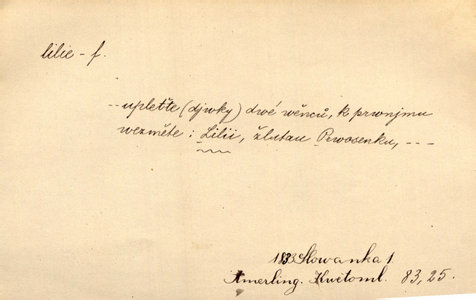 lilie - f.
-- upleťte (djwky) dwé wěnců, k prwnjmu
wezměte : Lilii, žlutau Prwosenku, ---
1833 Slowanka 1
Amerling. Kwětoml. 83, 25.